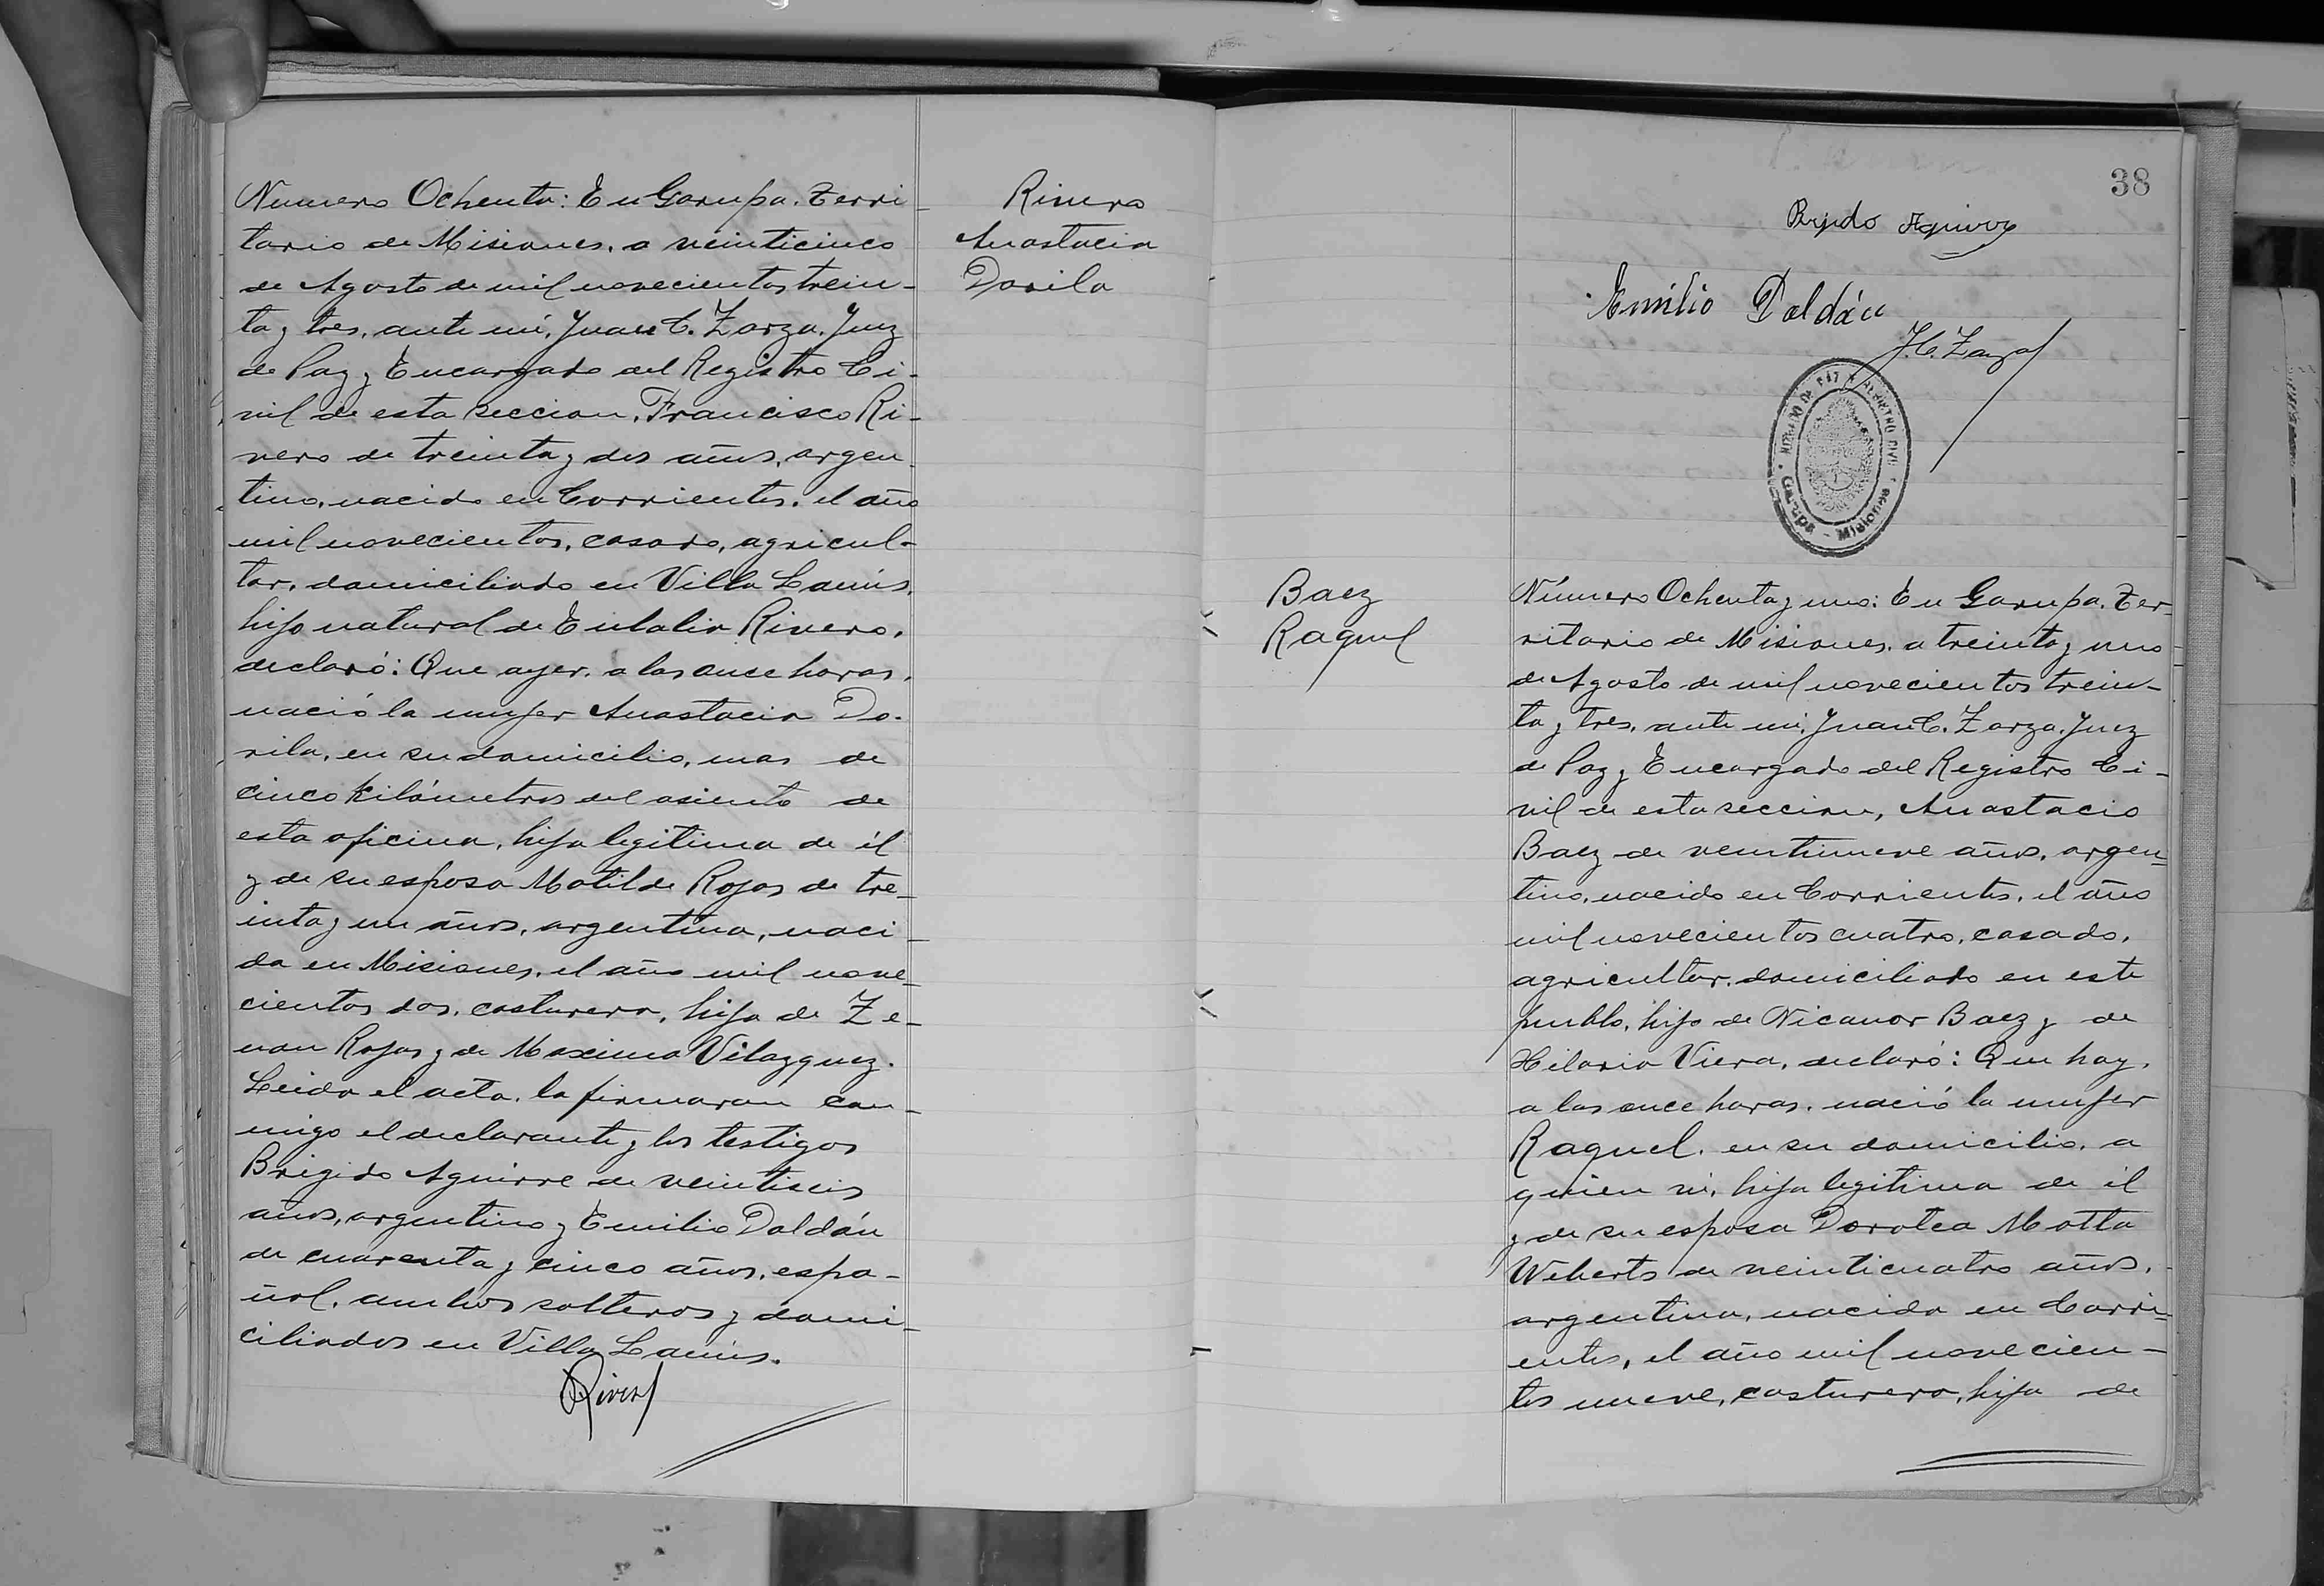 Numero Ochenta: En Garupa. Terri-
torio de Misiones, a veinticinco
de Agosto de mil novecientos trein-
ta y tres, ante mí, Juan C. Zarza, Juez
de Paz y Encargado del Registro Ci-
vil de esta seccion, Francisco Ri-
vero de treinta y dos años, argen-
tino, nacido en Corrientes, el año
mil novecientos, casado, agricul-
tor, domiciliado en Villa Lanús,
hijo natural de Eulalia Rivero,
declaró: Que ayer, a las once horas,
nació la mujer Anastacia Do-
rila, en su domicilio, mas de
cinco kilómetros del asiento de
esta oficina, hija legitima de él
y de su esposa Matilde Rojas de tre-
inta y un años, argentina, naci-
da en Misiones, el año mil nove-
cientos dos, costurera, hija de Ze-
non Rojas y de Maxima Vilazquez.
Leida el acta, la firmaron con-
migo el declarante y los testigos
Brigido Aguirre de veintiseis
años, argentino y Emilio Daldán
de cuarenta y cinco años, espa-
ñol, ambos solteros y domi-
ciliados en Villa Lanús.
Rivero
Rivero
Anastacia
Dorila
38
Brijido Aguirre
Emilio Daldán
J.C. Zarza
JUZGADO DE PAZ Y REGISTRO CIVIL
Garupa - Misiones
Baez
Raquel
Número Ochenta y uno: En Garupa. Ter-
ritorio de Misiones, a treinta y uno
de Agosto de mil novecientos trein-
ta y tres, ante mí, Juan C. Zarza, Juez
de Paz y Encargado del Registro Ci-
vil de esta seccion, Anastacio
Baez de veintinueve años, argen-
tino, nacido en Corrientes, el año
mil novecientos cuatro, casado,
agricultor, domiciliado en este
pueblo, hijo de Nicanor Baez y de
Hilaria Viera, declaró: Que hoy,
a las once horas, nació la mujer
Raquel, en su domicilio, a
quien ví, hija legitima de él
y de su esposa Dorotea Motta
Weberts de veinticuatro años,
argentina, nacida en Corri-
entes, el año mil novecien-
tos nueve, costurera, hija de